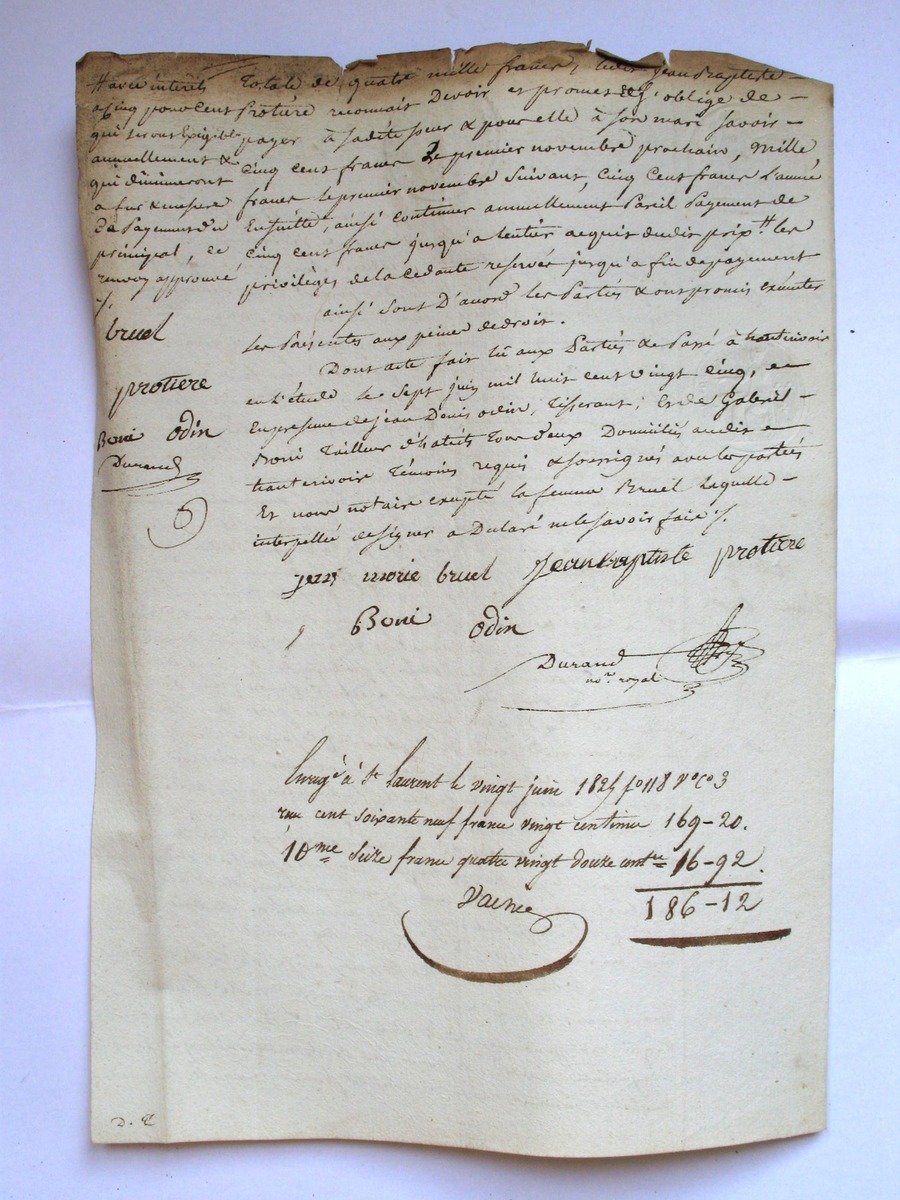 totale de quatre mille francs, ledit Jean Baptiste
Protière reconnait Devoir et promet & s'oblige de
payer à sa dite soeur & pour elle à son mari savoir
Cinq cent francs le premier novembre prochain, mille
francs le premier novembre suivant, Cinq Cent francs l'année
Ensuitte, ainsi continuer annuellement Pareil Payement de
Cinq cent francs jusqu'a l'entier acquit dudit prix # les
privilèges de la cedante reservés jusqu'a fin de payement
ainsi sont D'accord les Parties & ont promis exécuter
les Présentes aux peines de droit.
Dont acte fait lû aux Parties & Passé à hauterivoire
en L'étude le sept juin mil huit cent vingt cinq, en
En presence de jean Denis odin, Tisserant, et de Gabriel
Boni Tailleur d'habits Tous deux Domiciliés audit
hauterivoire Témoins requis & soussignés avec les parties
Et nous notaire excepté la femme Bruel laquelle
interpellée de signer a Declaré ne le savoir faire ./.
# avec intérêts
a Cinq pour cent
qui seront Exigible
annuellement &
qui diminueront
a fur & mesure
de Payement du
principal, ce
renvoy approuvé
./.
bruel
protiere
Boni Odin
Durand
jean marie bruel Jean Baptiste protiere
Boni Odin
Durand
no.re royal
Enregé à St Laurent le vingt juin 1825 fo 118 Vo Co 3
reçu cent soixante neuf francs vingt centimes 169-20.
10me Seize francs quatre vingt douze centes 16-92.
186-12
D. E